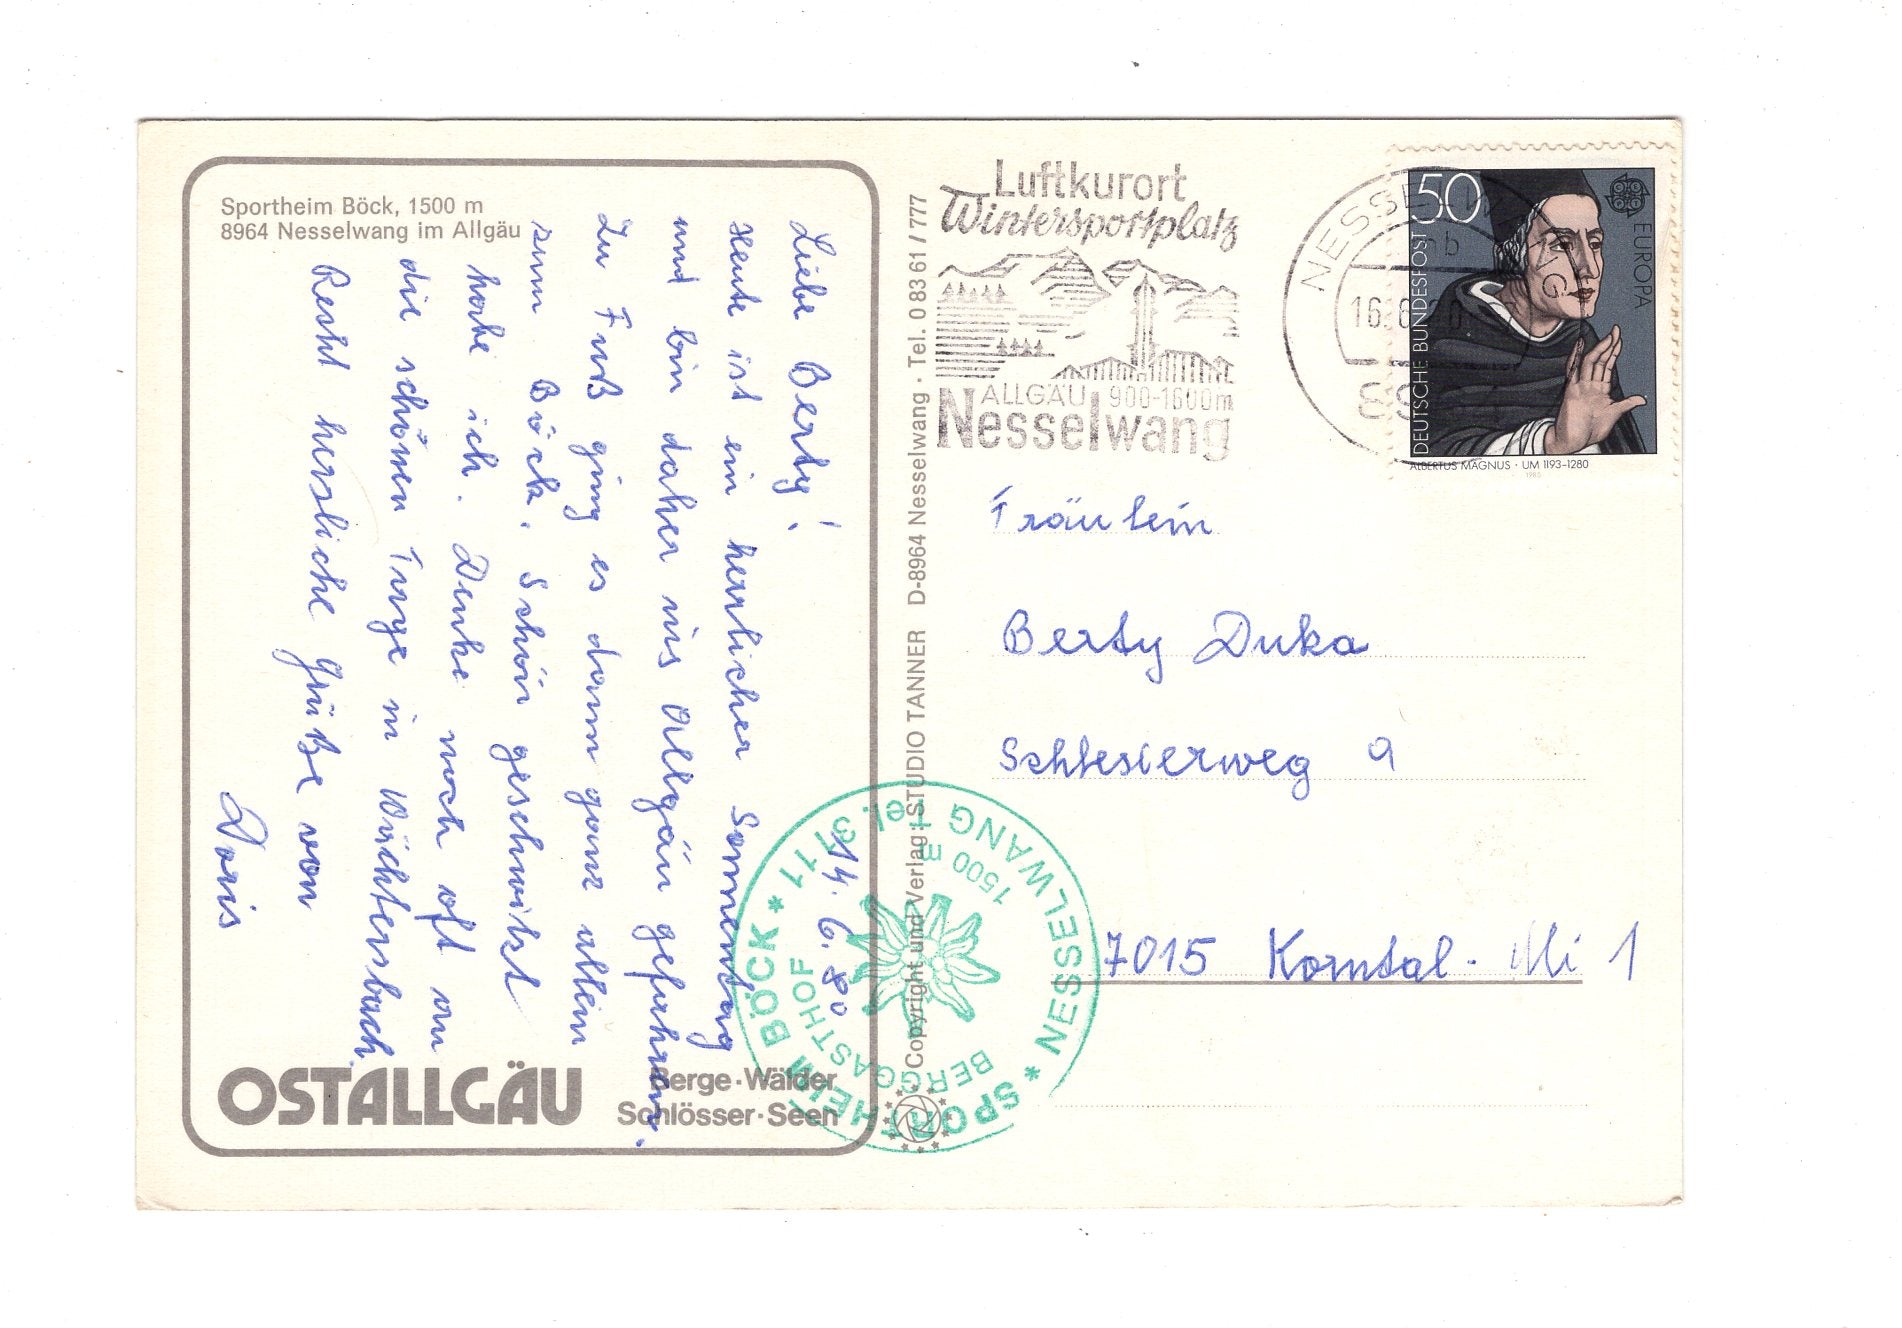 Sportheim Böck, 1500 m
8964 Nesselwang im Allgäu
14.6.80
Liebe Berty!
Heute ist ein herrlicher Sonnentag
und bin daher ins Allgäu gefahren.
Zu Fuß ging es dann ganz allein
zum Böck. Schön geschwitzt
habe ich. Denke noch oft an
die schönen Tage in Wächtersbach.
Recht herzliche Grüße von
Doris
OSTALLGÄU
Berge·Wälder
Schlösser·Seen
Copyright und Verlag: STUDIO TANNER D-8964 Nesselwang · Tel. 0 83 61 / 777
Luftkurort
Wintersportplatz
ALLGÄU 900-1600m
Nesselwang
NESSELWANG
mb
16.6.80
50
DEUTSCHE BUNDESPOST
EUROPA
ALBERTUS MAGNUS · UM 1193-1280
Fräulein
Berty Duka
Schlesierweg 9
7015 Korntal-Mü 1
* SPORTHEIM BÖCK * NESSELWANG Tel. 3111
BERGGASTHOF 1500 m